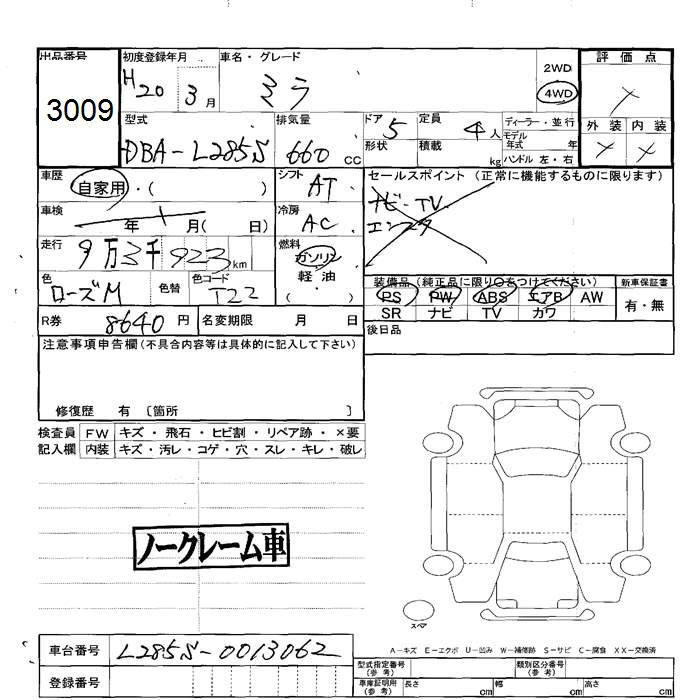 出品番号 初度登録年月 車名・グレード 2WD 評価点
3009 H20 3月 ミラ 4WD
型式 排気量 ドア 5 定員 4人 ディーラー・並行 外装 内装
DBA-L285S 660cc 形状 積載 kg モデル年式 年
ハンドル 左・右
車歴 自家用・( ) シフト AT セールスポイント (正常に機能するものに限ります)
車検 年 月( 日) 冷房 AC ナビ-TV
走行 9万3千923km 燃料 ガソリン 軽・油 ( )
色 ローズM 色替 色コード T22 装備品 (純正品に限り○をつけてください) 新車保証書
PS PW ABS エアB AW 有・無
SR ナビ TV カワ
R券 8640円 名変期限 月 日 後日品
注意事項申告欄 (不具合内容等は具体的に記入して下さい)
修復歴 有 〔箇所 〕
検査員 FW キズ・飛石・ヒビ割・リペア跡・×要
記入欄 内装 キズ・汚レ・コゲ・穴・スレ・キレ・破レ
ノークレーム車
スペア
A-キズ E-エクボ U-凹み W-補修跡 S-サビ C-腐食 XX-交換済
車台番号 L285S-0013062 型式指定番号(参考) 類別区分番号(参考)
登録番号 車庫証明用(参考) 長さ cm 幅 cm 高さ cm